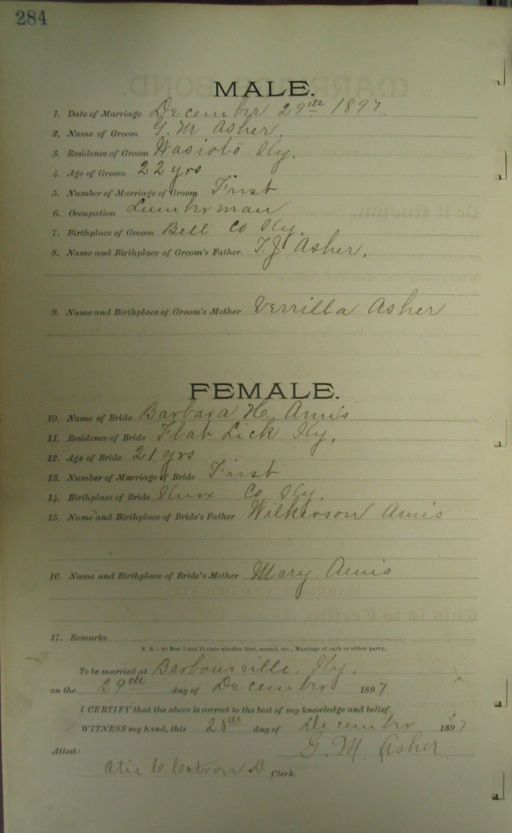 284
MALE.
1. Date of Marriage December 29th 1897
2. Name of Groom G. M Asher.
3. Residence of Groom Wasioto Ky.
4. Age of Groom 22 yrs
5. Number of Marriage of Groom First
6. Occupation Lumberman
7. Birthplace of Groom Bell Co Ky.
8. Name and Birthplace of Groom's Father T. J. Asher,
9. Name and Birthplace of Groom's Mother Verrilla Asher
FEMALE.
10. Name of Bride Barbara H. Amis
11. Residence of Bride Flat Lick Ky,
12. Age of Bride 21 yrs
13. Number of Marriage of Bride First
14. Birthplace of Bride Knox Co Ky.
15. Name and Birthplace of Bride's Father Wilkerson Amis
16. Name and Birthplace of Bride's Mother Mary Amis
17. Remarks
N. B.—At Nos. 5 and 13 state whether first, second, etc., Marriage of each or either party.
To be married at Barbourville, Ky.
on the 29th day of December 1897
I CERTIFY that the above is correct to the best of my knowledge and belief.
WITNESS my hand, this 28th day of December 1897
G. M. Asher
Attest:
Clerk.